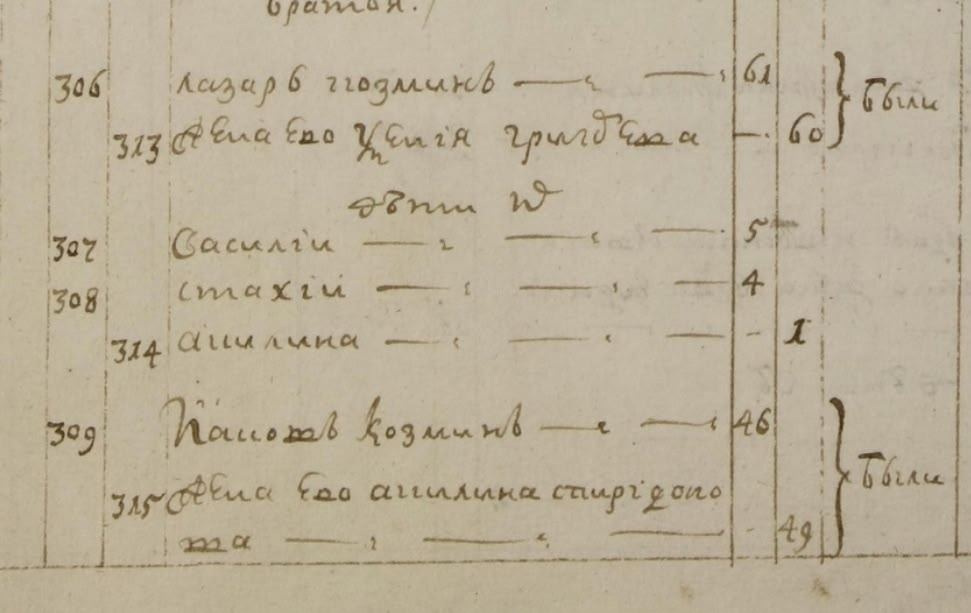 братом.
306 лазарь козминъ — — 61 были
313 жена ево григорьева — 60
дѣти их
307 василии — — — 5
308 стахiи — — — 4
314 акилина — — — - 1
309 козминъ — — 46 были
315 жена ево акилина спиридоно
ва — — — - 49